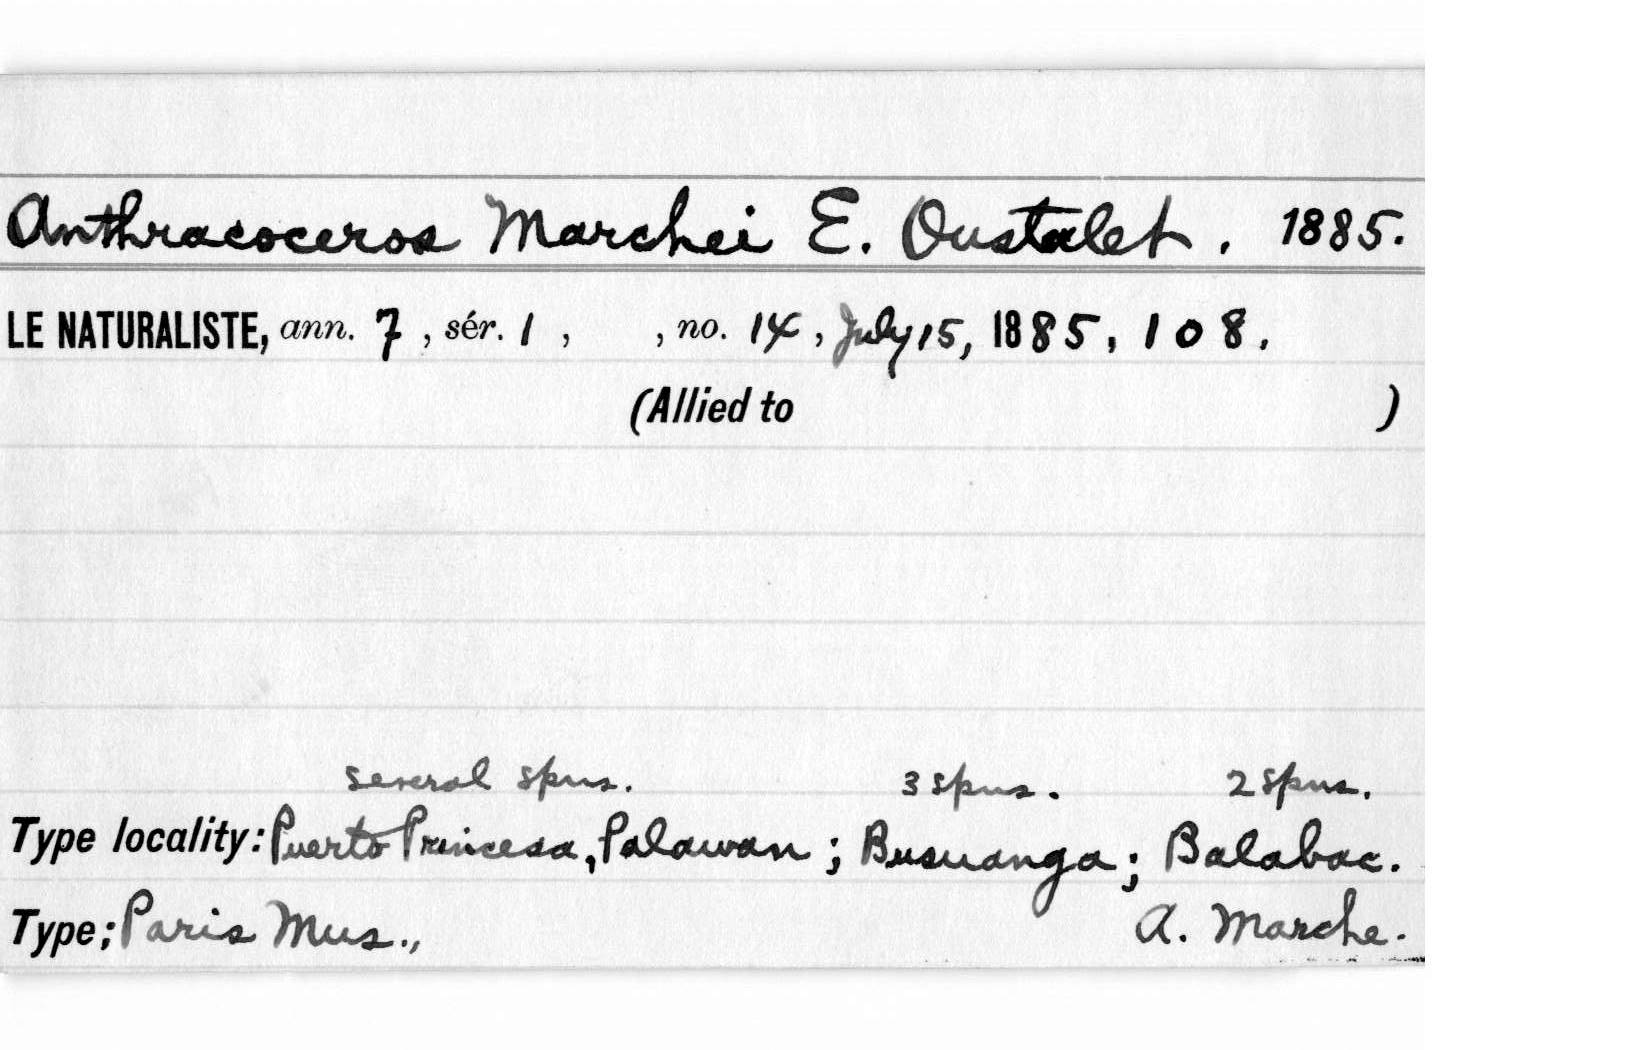 Anthracoceros Marchei E. Oustalet. 1885.
LE NATURALISTE, ann. 7, sér. 1, , no. 14, July 15, 1885, 108.
(Allied to )
several spms. 3 spms. 2 spms.
Type locality: Puerto Princesa, Palawan; Busuanga; Balabac.
Type; Paris Mus., A. Marche.